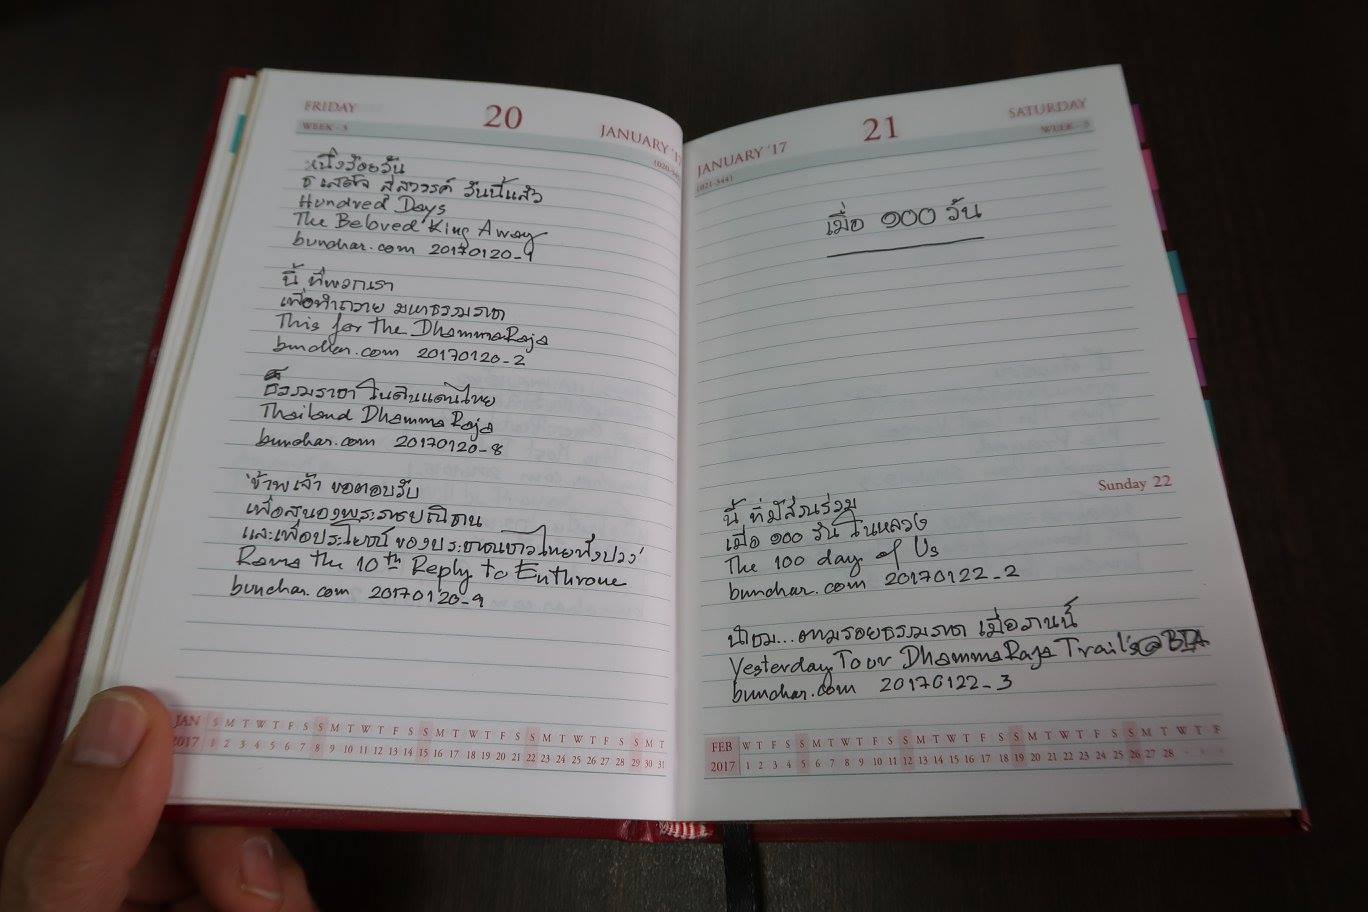 FRIDAY
20
JANUARY '17
WEEK - 3
หนึ่งร้อยวัน
ธ เสด็จ สู่สวรรค์ วันนี้แล้ว
Hundred Days
The Beloved King Away
bunchar.com 20170120_1
นี้ ที่พวกเรา
เพื่อทำถวาย มหาธรรมราชา
This for the DhammaRaja
bunchar.com 20170120_2
ธรรมราชา ในดินแดนไทย
Thailand DhammaRaja
bunchar.com 20170120_8
ข้าพเจ้า ขอตอบรับ
เพื่อสนองพระราชปณิธาน
และเพื่อประโยชน์ ของประชาชนชาวไทยทั้งปวง
Rama the 10th Reply to Enthrone
bunchar.com 20170120_9
JAN S M T W T F S S M T W T F S S M T W T F S S M T W T F S S M T
2017 1 2 3 4 5 6 7 8 9 10 11 12 13 14 15 16 17 18 19 20 21 22 23 24 25 26 27 28 29 30 31
JANUARY '17
21
SATURDAY
(021-344)
WEEK - 3
เมื่อ ๑๐๐ วัน
Sunday 22
นี้ ที่มีส่วนร่วม
เมื่อ ๑๐๐ วัน ในหลวง
The 100 day of Us
bunchar.com 20170122_2
นำชม...ตามรอยธรรมราชา เมื่อวานนี้
Yesterday Tour DhammaRaja Trail's@BIA
bunchar.com 20170122_3
FEB W T F S S M T W T F S S M T W T F S S M T W T F S S M T W T F
2017 1 2 3 4 5 6 7 8 9 10 11 12 13 14 15 16 17 18 19 20 21 22 23 24 25 26 27 28 - - -